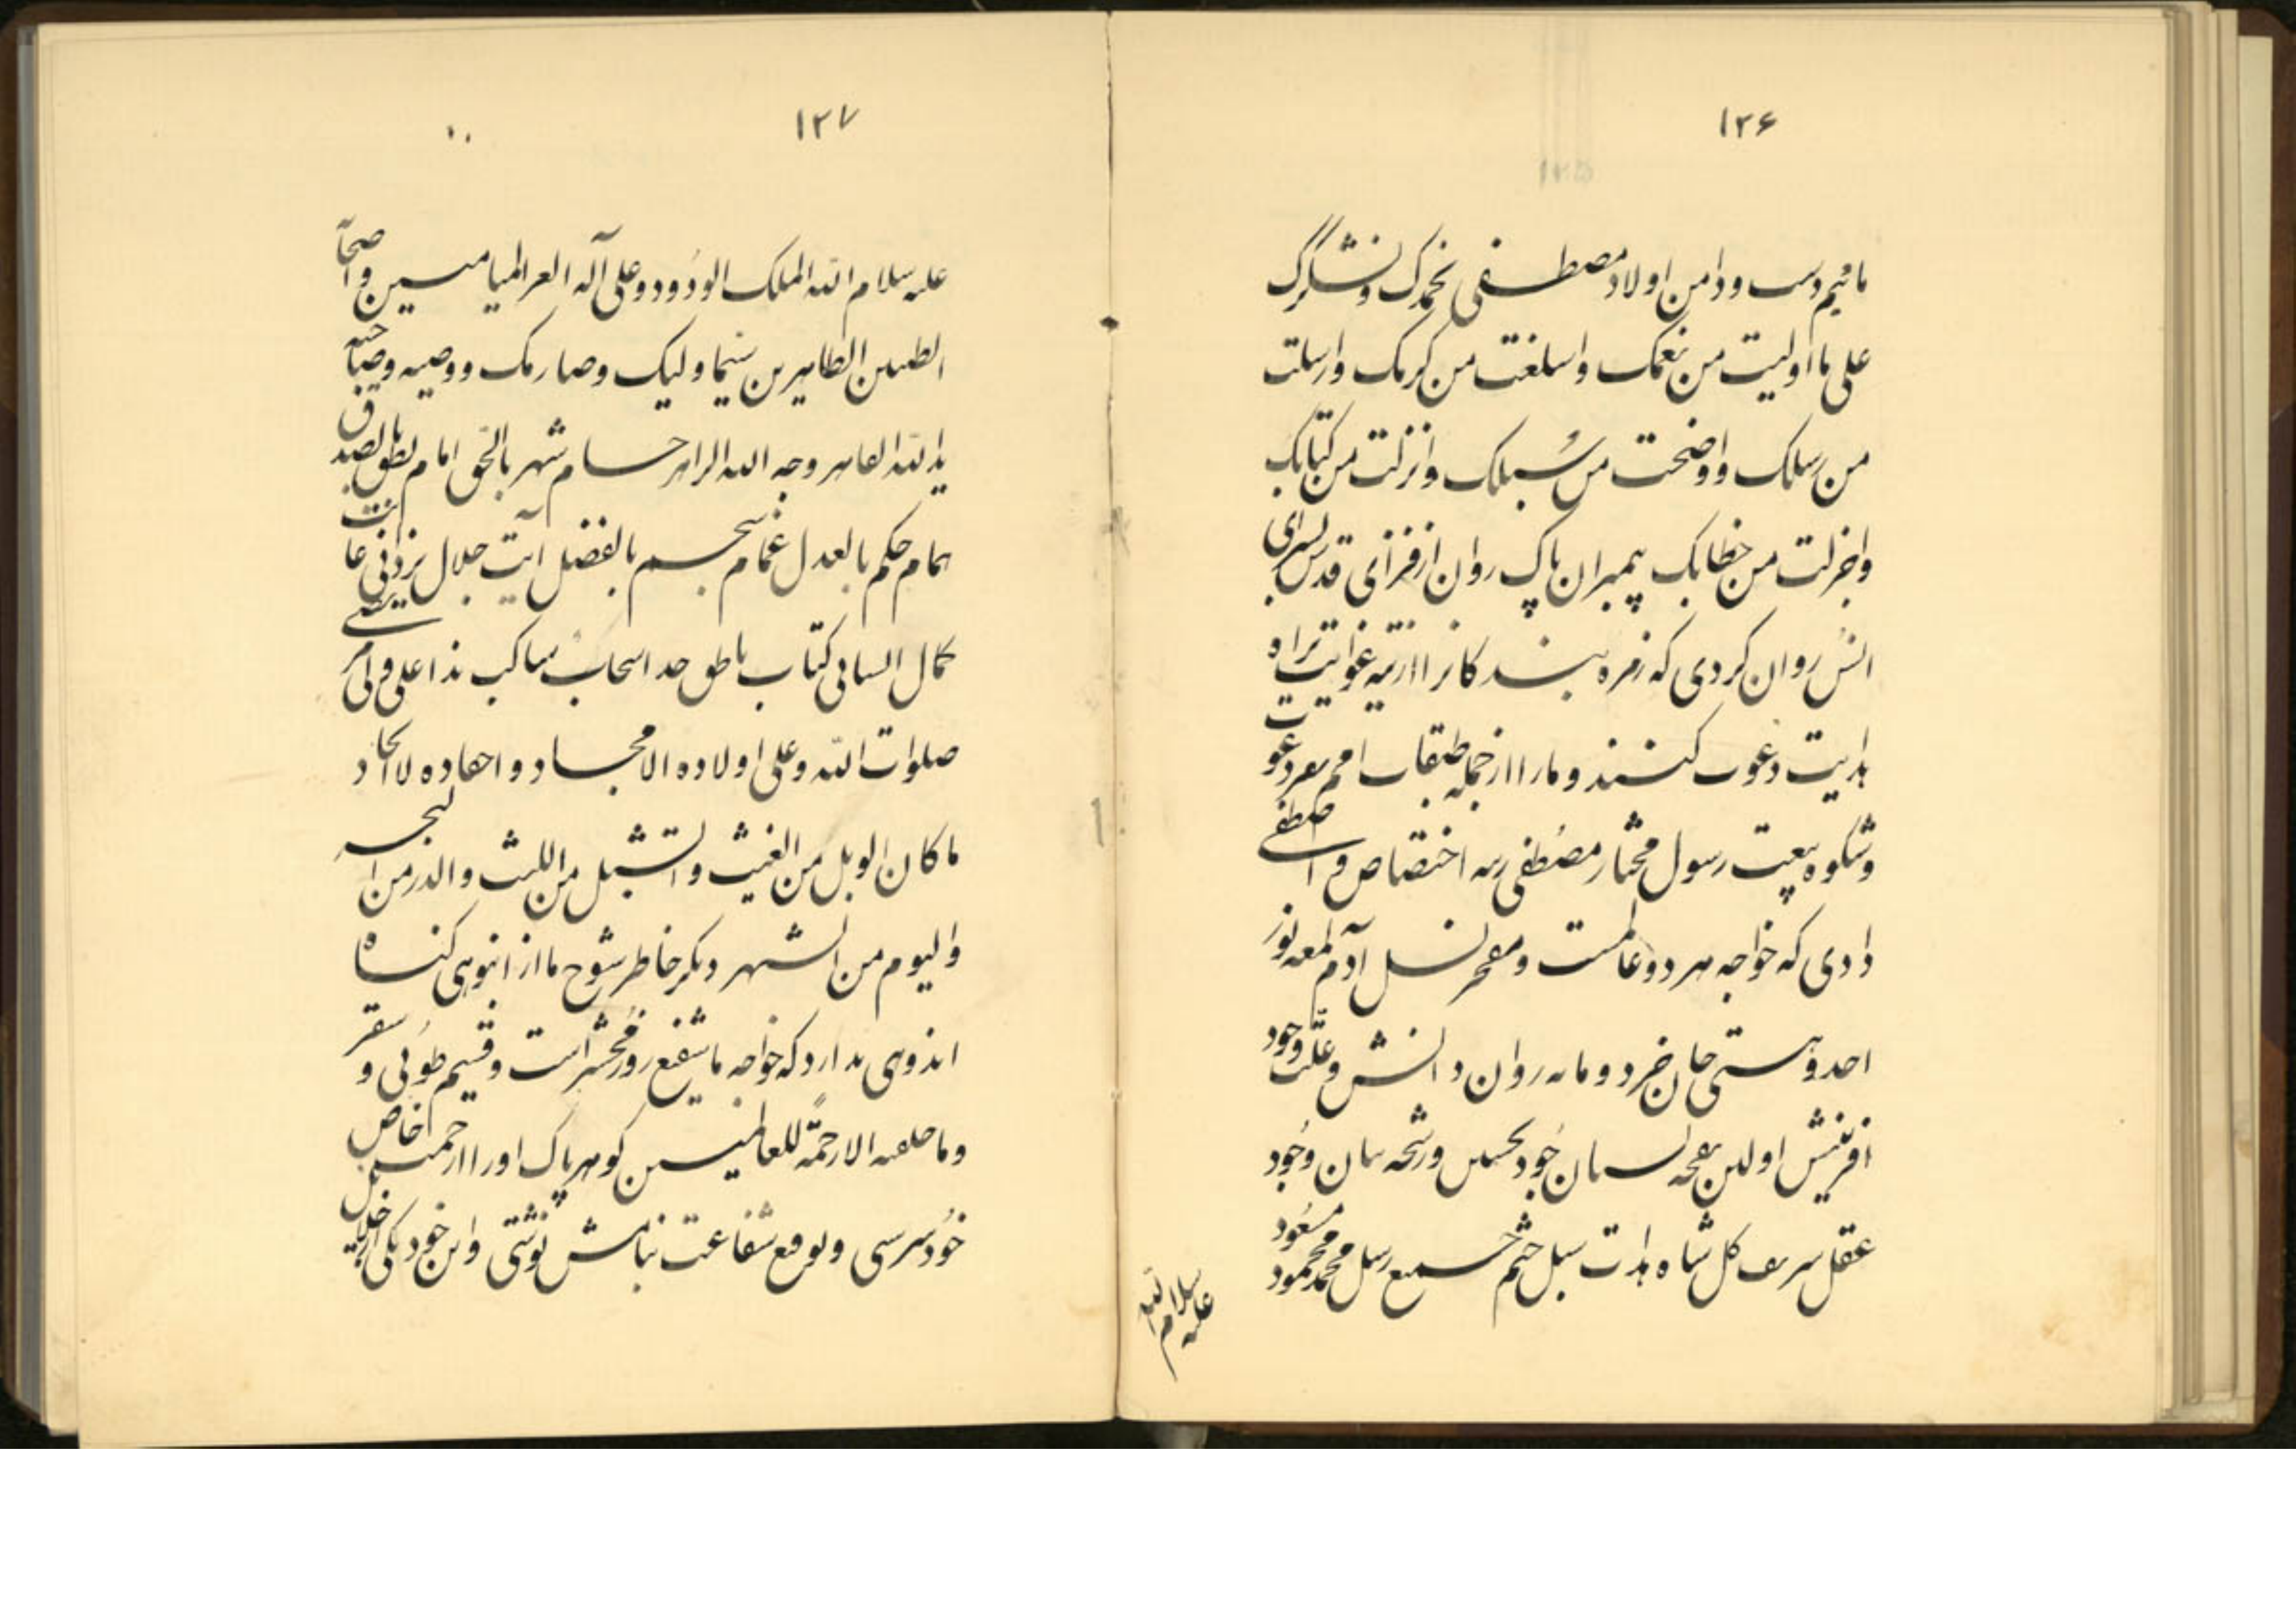 ۱۲۶
مائیم دست و دامن اولاد مصطفی نحمدک و نشکرک
علی ما اولیت من نعمک و اسبغت من کرمک و ارسلت
من رسلک و اوضحت من سبلک و انزلت من کتابک
و اجزلت من خطابک پیمبران پاک روان از فزای قدس بسرای
انس روان کردی که زمره بندکانرا از تیه غوایت براه
هدایت دعوت کنند و ما را از جمله طبقات امم بعز دعوت
و شکوه بیعت رسول مختار مصطفی رتبه اختصاص و اصطفی
دادی که خواجه هر دو عالمست و مفخر نسل آدم لمعه نور
احد و هستی جان خرد و مایه روان دانش و علت وجود
آفرینش اولین نفحه بستان جود نخستین رشحه وجود
عقل کل شاه هدات سبل ختم جمیع رسل محمد محمود مسعود
علیه سلام الله
۱۲۷
علیه سلام الله الملک الودود و علی آله الغر المیامین و اصحابه
الطیبین الطاهرین سیما ولیک و صارمک و وصیه و صاحبه
ید الله القاهر وجه الله الزاهر حسام شهر بالحق امام نطق بالصدق
همام حکم بالعدل غمام سجم بالفضل آیت جلال یزدانی غایت
کمال انسانی کتاب ناطق ساکب هذا علی ولی امر
صلوات الله و علی اولاده الامجاد و احفاده الانجاد
ما کان الوبل من الغیث و الشبل من اللیث و الدر من البحر
و الیوم من الشهر دیکر خاطر شوح ما از انبوهی کناه
اندوهی ندارد که خواجه ما شفیع روز محشر است و قسیم طوبی و سقر
و ما خلقته الا رحمة للعالمین کوهر پاک او را از رحمت خاص
خود سرشتی و توقیع شفاعت بنامش نوشتی و این خود یکی از